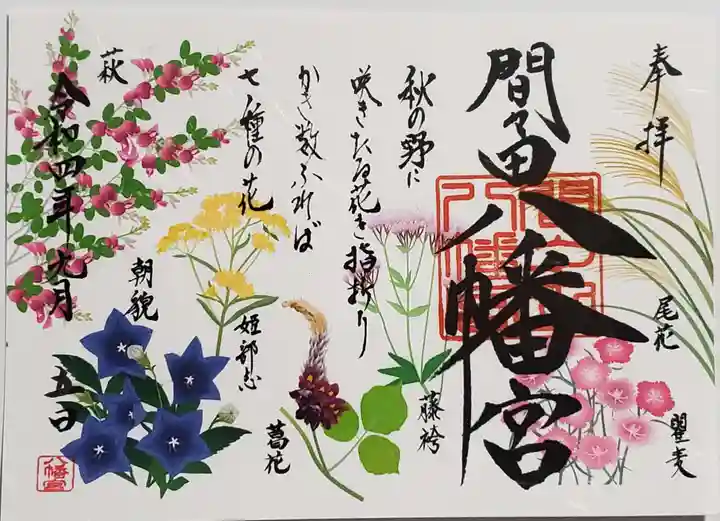 奉拝
間々田八幡宮
尾花
瞿麦
秋の野に
咲きたる花を指折り
かき数ふれば
七種の花
藤袴
葛花
姫部志
朝貌
萩
令和四年九月
五日
八幡宮